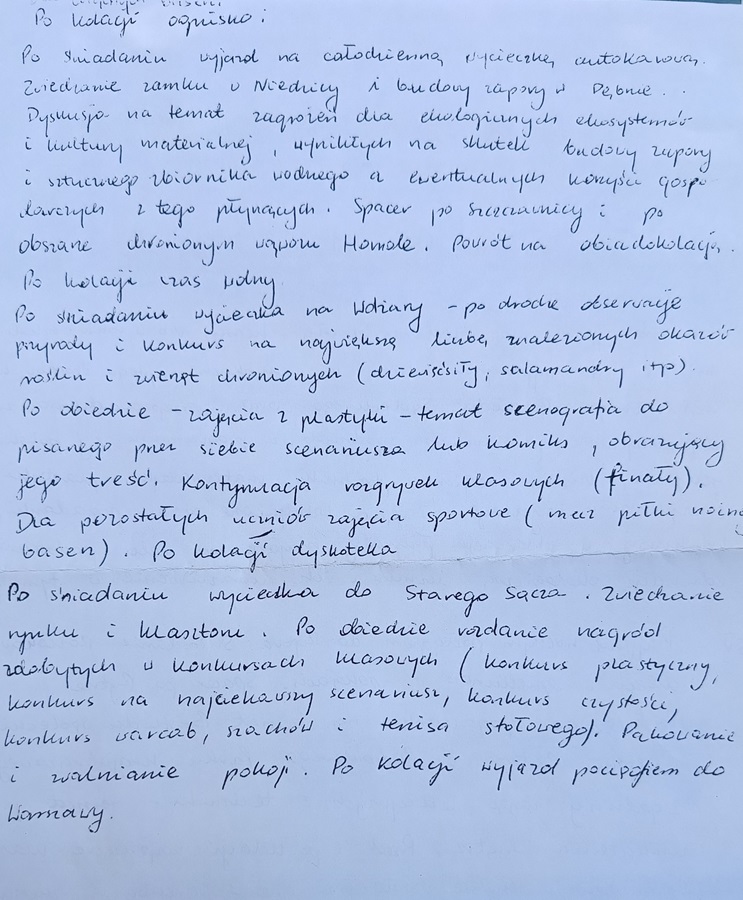 Po kolacji ognisko:
Po śniadaniu wyjazd na całodzienną wycieczkę autokarową.
Zwiedzanie zamku w Niedzicy i budowy zapory w Dębnie.
Dyskusja na temat zagrożeń dla ekologicznych ekosystemów
i kultury materialnej, wynikłych na skutek budowy zapory
i sztucznego zbiornika wodnego a ewentualnych korzyści gospo
darczych z tego płynących. Spacer po Szczawnicy i po
obszarze chronionym wąwozu Homole. Powrót na obiadokolację.
Po kolacji czas wolny
Po śniadaniu wycieczka na Wdżary - po drodze obserwacje
przyrody i konkurs na największą liczbę znalezionych okazów
roślin i zwierząt chronionych (dziewięćsiły, salamandry itp).
Po obiedzie - zajęcia z plastyki - temat scenografia do
pisanego przez siebie scenariusza lub komiks, obrazujący
jego treść. Kontynuacja rozgrywek klasowych (finały).
Dla pozostałych uczniów zajęcia sportowe (mecz piłki nożnej
basen). Po kolacji dyskoteka
Po śniadaniu wycieczka do Starego Sącza. Zwiedzanie
rynku i klasztoru. Po obiedzie rozdanie nagród
zdobytych w konkursach klasowych (konkurs plastyczny,
konkurs na najciekawszy scenariusz, konkurs czystości,
konkurs warcab, szachów i tenisa stołowego). Pakowanie
i zwalnianie pokoji. Po kolacji wyjazd pociągiem do
Warszawy.